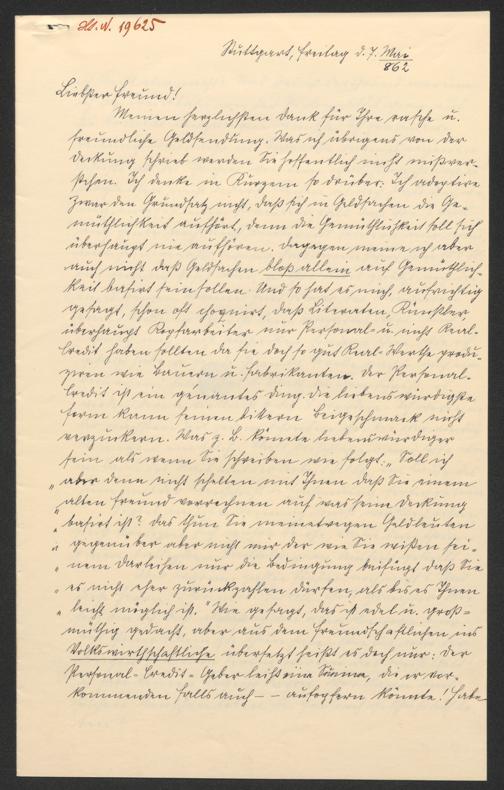 Hs. N. 19625
Stuttgart, Freitag d. 7. Mai
862
Liebster Freund!
Meinen herzlichsten Dank für Ihre rasche u.
freundliche Geldsendung. Was ich übrigens von der
Deckung schrieb werden Sie hoffentlich nicht mißver-
stehen. Ich denke in Kurzem so drüber: Ich adoptire
zwar den Grundsatz nicht, daß sich in Geldsachen die Ge-
müthlichkeit aufhört, denn die Gemüthlichkeit soll sich
überhaupt nie aufhören. Dagegen meine ich aber
auch nicht daß Geldsachen bloß allein auf Gemüthlich-
keit basirt sein sollen. Und so hat es mich, aufrichtig
gesagt, schon oft choquirt, daß Literaten, Künstler
überhaupt Kopfarbeiter nur Personal- u. nicht Real-
Credit haben sollten da sie doch so gut Real-Werthe produ-
ziren wie Bauern u. Fabrikanten. Der Personal-
Credit ist ein genantes Ding. die liebenswürdigste
Form kann seinen bittern Beigeschmack nicht
verzuckern. Was z. B. könnte liebenswürdiger
sein als wenn Sie schreiben wie folgt: „Soll ich
„ aber denn nicht schelten mit Ihnen daß Sie einem
„ alten Freund vorrechnen auf was seine Deckung
„ basirt ist? Das thun Sie meinetwegen Geldleuten
„ gegenüber aber nicht mir der wie Sie wißen sei-
„ nem Darleihen nur die Bedingung beifügt daß Sie
„ es nicht eher zurückzahlen dürfen, als bis es Ihnen
„ leicht möglich ist." Wie gesagt, das ist edel u. groß-
müthig gedacht, aber aus dem Freundschaftlichen ins
Volkswirthschaftliche übersetzt heißt es doch nur: Der
Personal-Credit-Geber leiht eine Summe, die er vor-
kommenden Falls auch – – aufopfern könnte! Habe